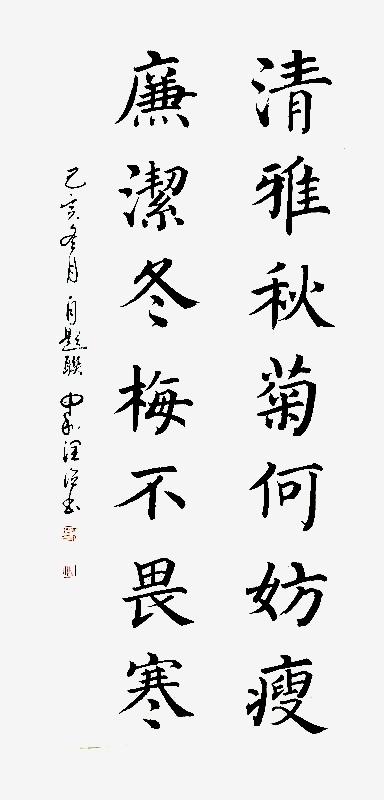 清雅秋菊何妨瘦
廉潔冬梅不畏寒
己亥冬月自題聯